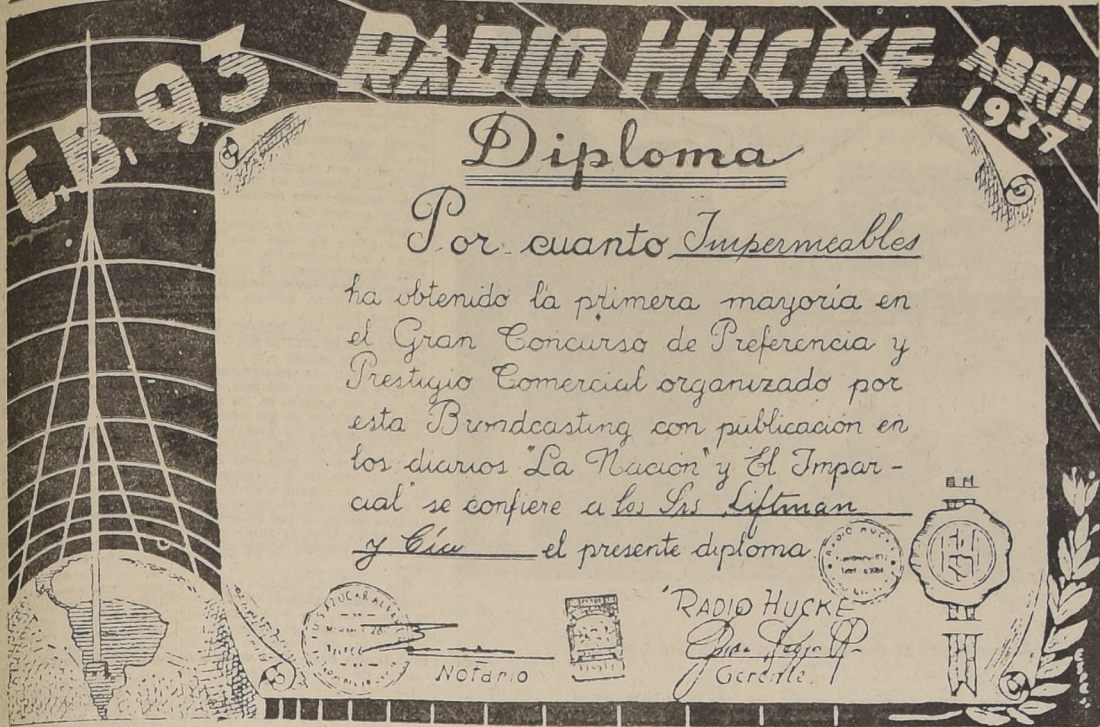 C.B. 93
RADIO HUCKE
ABRIL
1937
Diploma
Por cuanto Impermeables
ha obtenido la primera mayoría en
el Gran Concurso de Preferencia y
Prestigio Comercial organizado por
esta Brondcasting con publicación en
los diarios "La Nación" y El Impar-
cial" se confiere a los Srs Liftman
y Cía el presente diploma.
RADIO HUCKE
"RADIO HUCKE
Notario
Gerente.